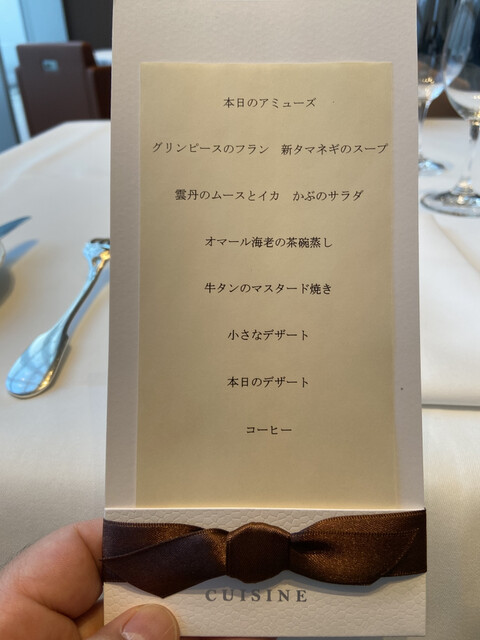 本日のアミューズ
グリンピースのフラン　新タマネギのスープ
雲丹のムースとイカ　かぶのサラダ
オマール海老の茶碗蒸し
牛タンのマスタード焼き
小さなデザート
本日のデザート
コーヒー
CUISINE